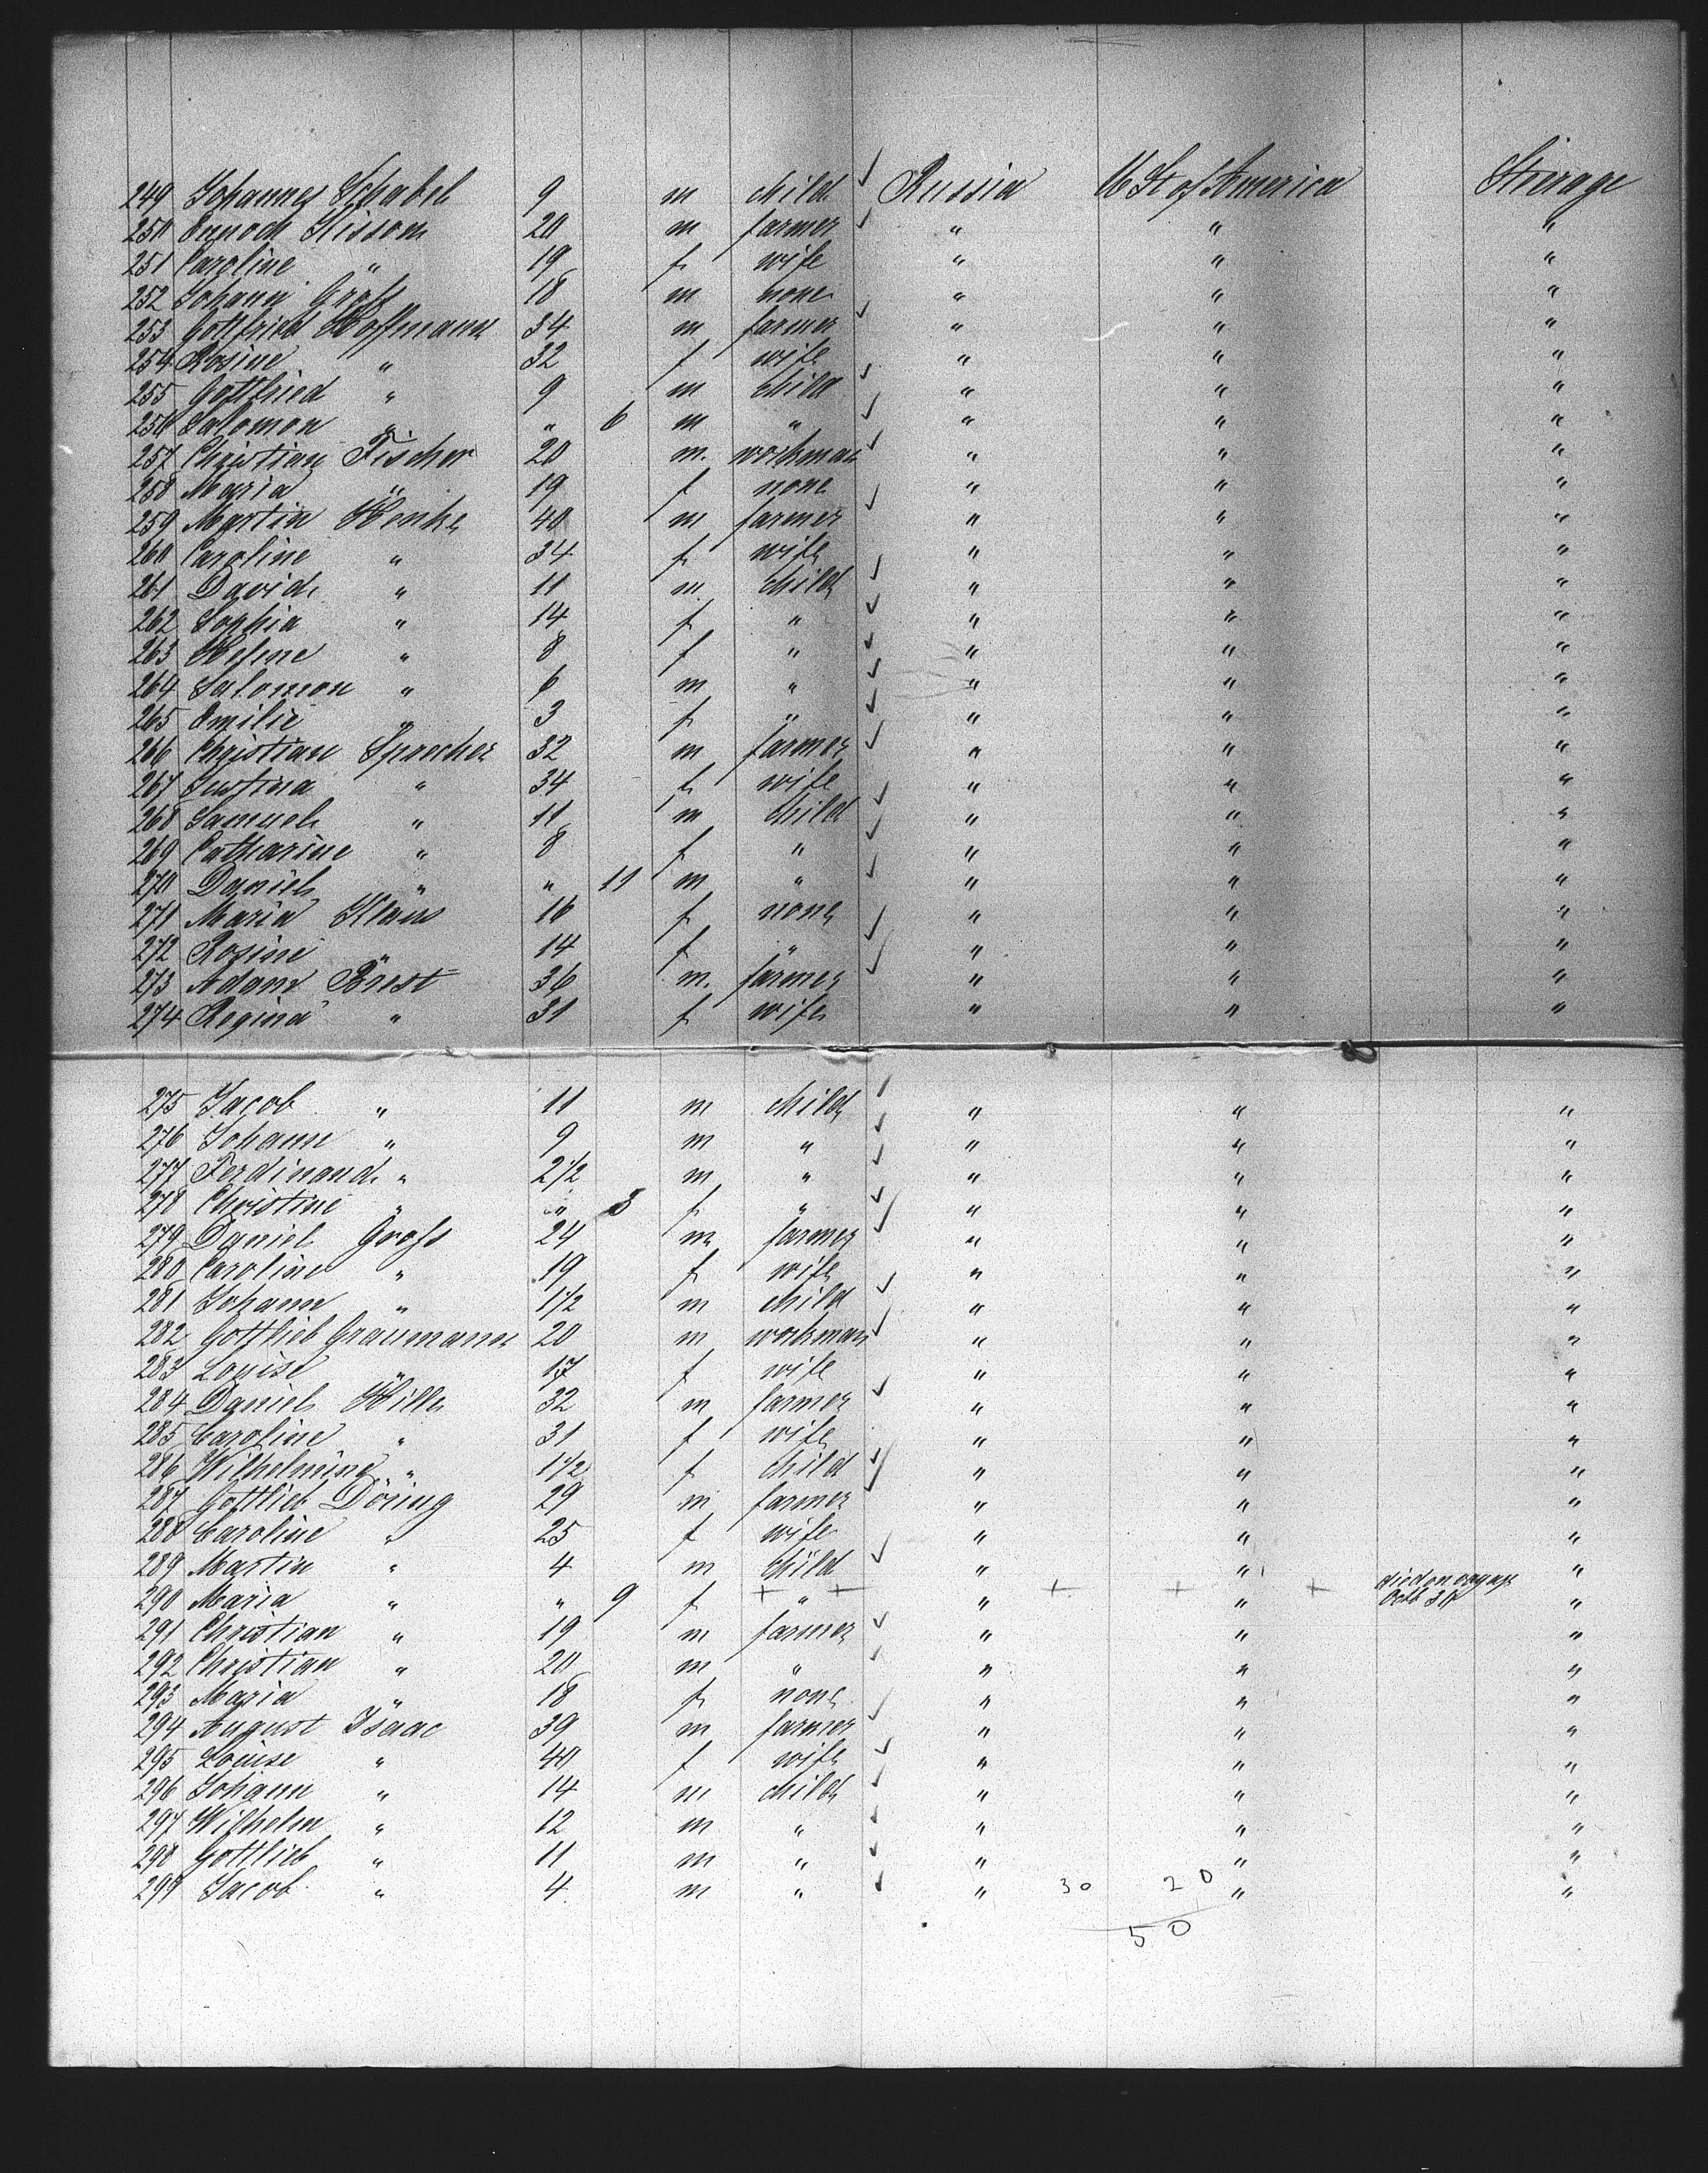 249 Johannes Schabel 9 m child Russia U St of America Steerage
250 Enoch Kisson 20 m farmer " " "
251 Caroline " 19 f wife " " "
252 Johann Gross 18 m none " " "
253 Gottfried Hoffmann 34 m farmer " " "
254 Rosine " 32 f wife " " "
255 Gottfried " 9 m child " " "
256 Salomon " " 6 m " " " "
257 Christian Fischer 20 m. workman " " "
258 Maria " 19 f none " " "
259 Martin Henke 40 m farmer " " "
260 Caroline " 34 f wife " " "
261 David " 11 m child " " "
262 Sophia " 14 f " " " "
263 Helene " 8 f " " " "
264 Salomon " 6 m " " " "
265 Emilie " 3 f " " " "
266 Christian Sprecher 32 m farmer " " "
267 Justina " 34 f wife " " "
268 Samuel " 11 m child " " "
269 Catharine " 8 f " " " "
270 Daniel " " 11 m " " " "
271 Maria Klaus 16 f none " " "
272 Rosine " 14 f " " " "
273 Adam 36 m. farmer " " "
274 Regina " 31 f wife " " "
275 Jacob " 11 m child " " "
276 Johann " 9 m " " " "
277 Ferdinand " 2 1/2 m " " " "
278 Christine " " 3 f " " " "
279 Daniel Gross 24 m farmer " " "
280 Caroline " 19 f wife " " "
281 Johann " 1/2 m child " " "
282 Gottlieb Graumann 20 m workman " " "
283 Louise " 17 f wife " " "
284 Daniel Hille 32 m farmer " " "
285 Caroline " 31 f wife " " "
286 Wilhelmine " 1 1/2 f child " " "
287 Gottlieb Döring 29 m farmer " " "
288 Caroline " 25 f wife " " "
289 Martin " 4 m child " " "
290 Maria " " 9 f + " + " + + " + died on voyage Octb 30 "
291 Christian " 19 m farmer " " "
292 Christian " 20 m " " " "
293 Maria " 18 f none " " "
294 August Isaac 39 m farmer " " "
295 Louise " 40 f wife " " "
296 Johann " 14 m child " " "
297 Wilhelm " 12 m " " " "
298 Gottlieb " 11 m " " " "
299 Jacob " 4 m " " 30 20 " "
50